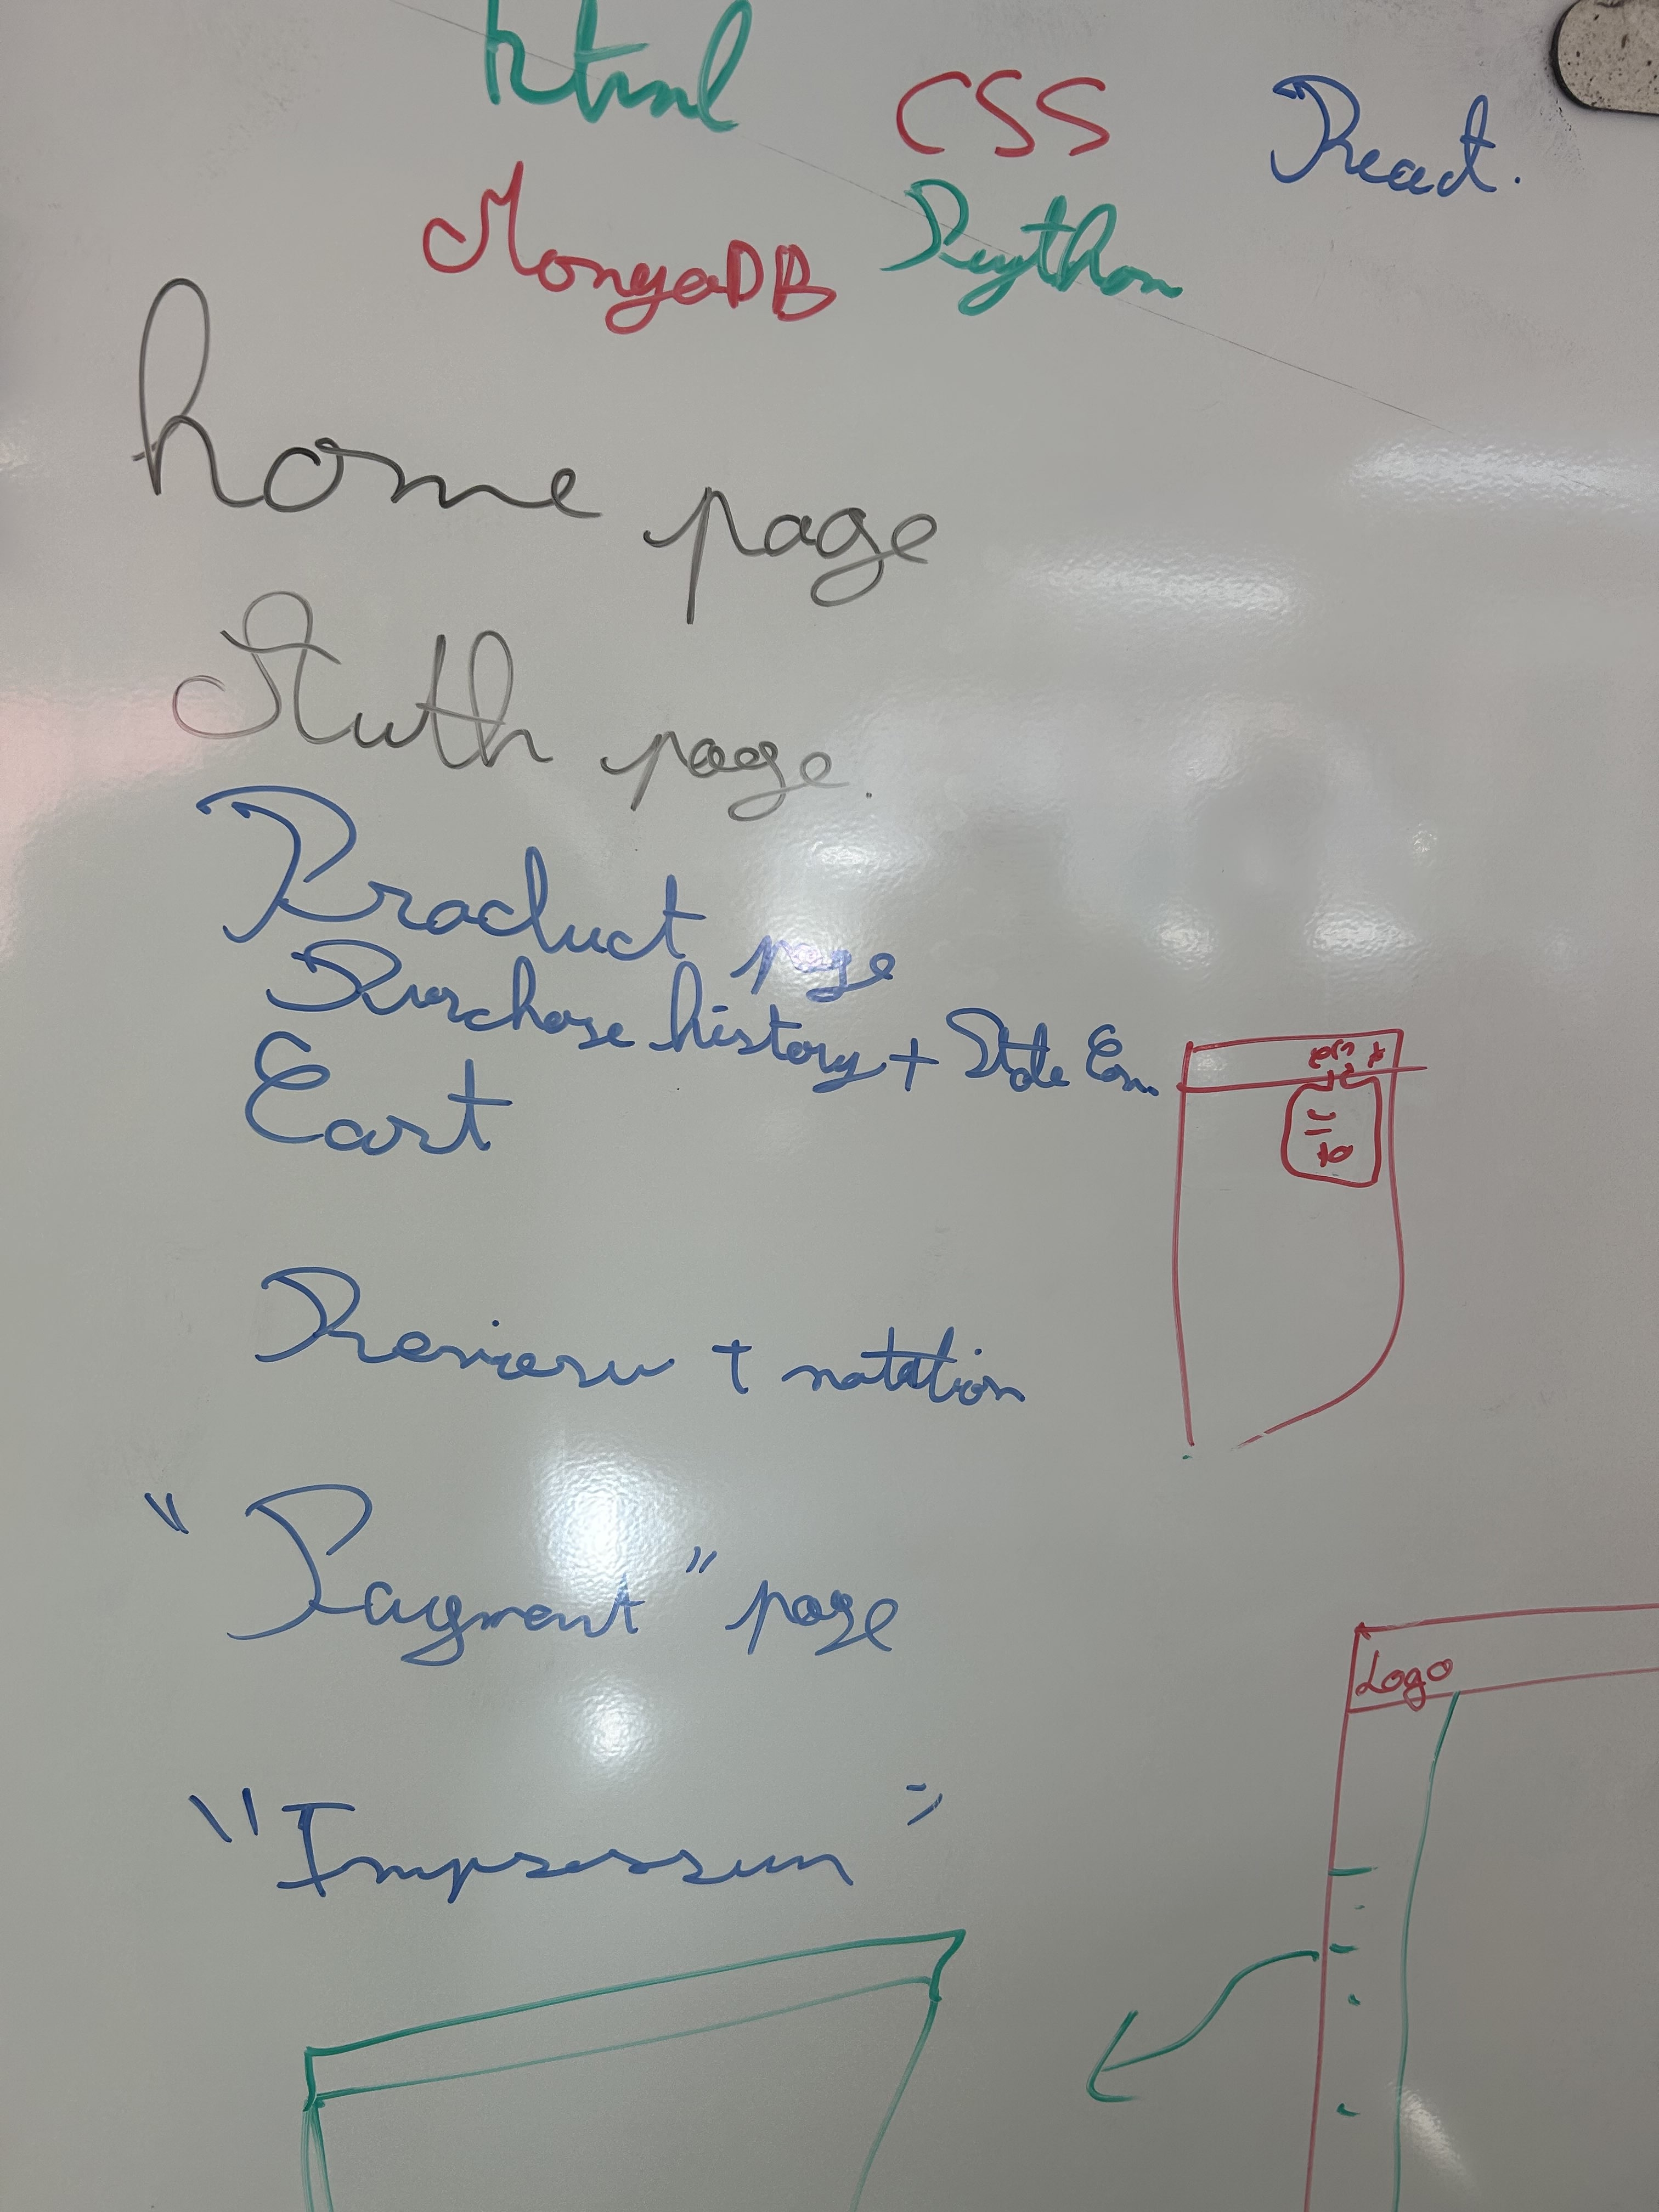 html CSS React.
MongoDB Python
home page
Auth page.
Product page
Purchase history + State Com.
Cart
Review + notation
"Payment" page
Logo
"Impressum"